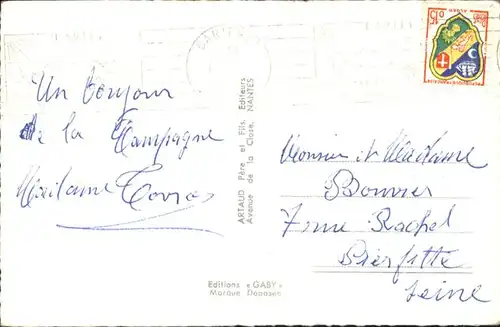 Un bonjour
de la Campagne
Madame Torres
ARTAUD Père et Fils, Editeurs
Avenue de la Close, NANTES
Editions « GABY »
Marque Déposée
0,15
ALGER
Monsieur et Madame
Bouvier
7 rue Rachel
Pierfitte
Seine